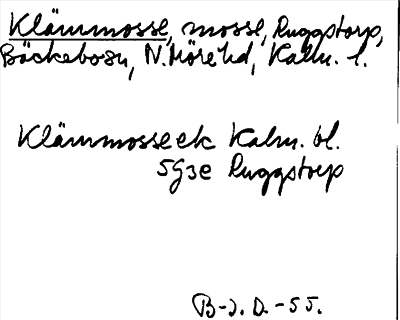 Klämmosse, mosse, Ruggstorp,
Bäckebosn, N. Möre hd, Kalm. l.
Klämmosse ek Kalm. bl.
5G3e Ruggstorp
B-J. D. -55.